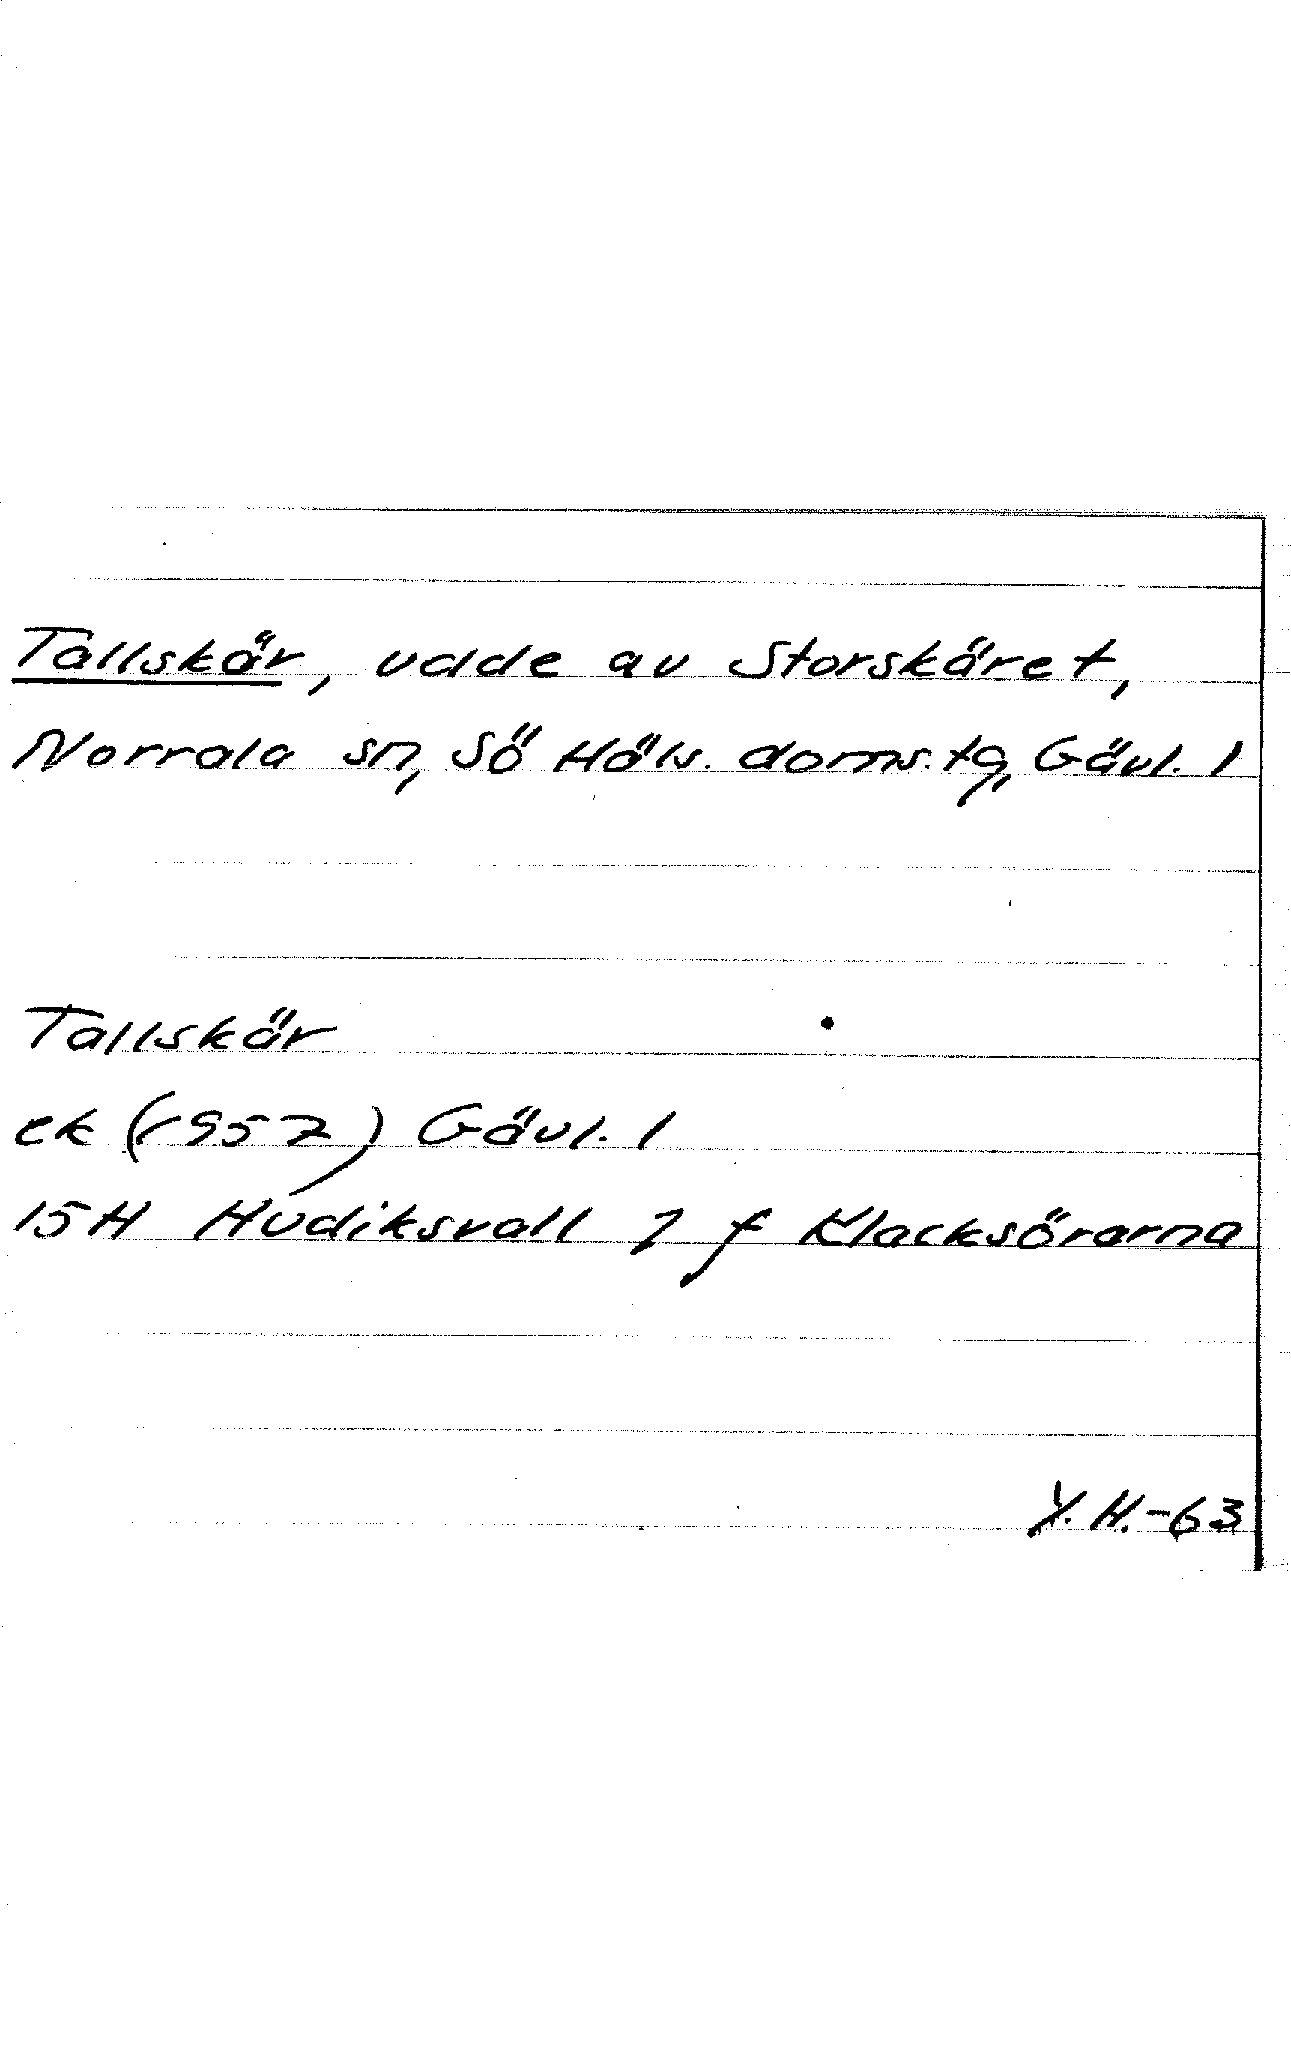 Tallskär, udde av Storskäret,
Norrala sn, Sö Häls. doms. tg, Gävl. l
Tallskär
ek (1957) Gävl. l
15H Hudiksvall 1 f Klacksörarna
Y. H. -63